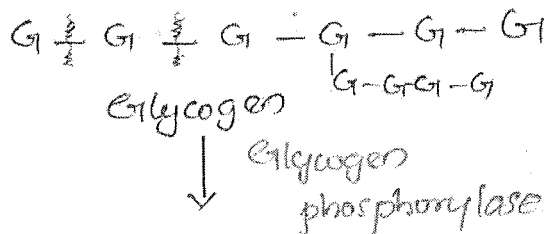 G G G - G - G - G
G-GG-G
Glycogen
Glycogen
phosphorylase